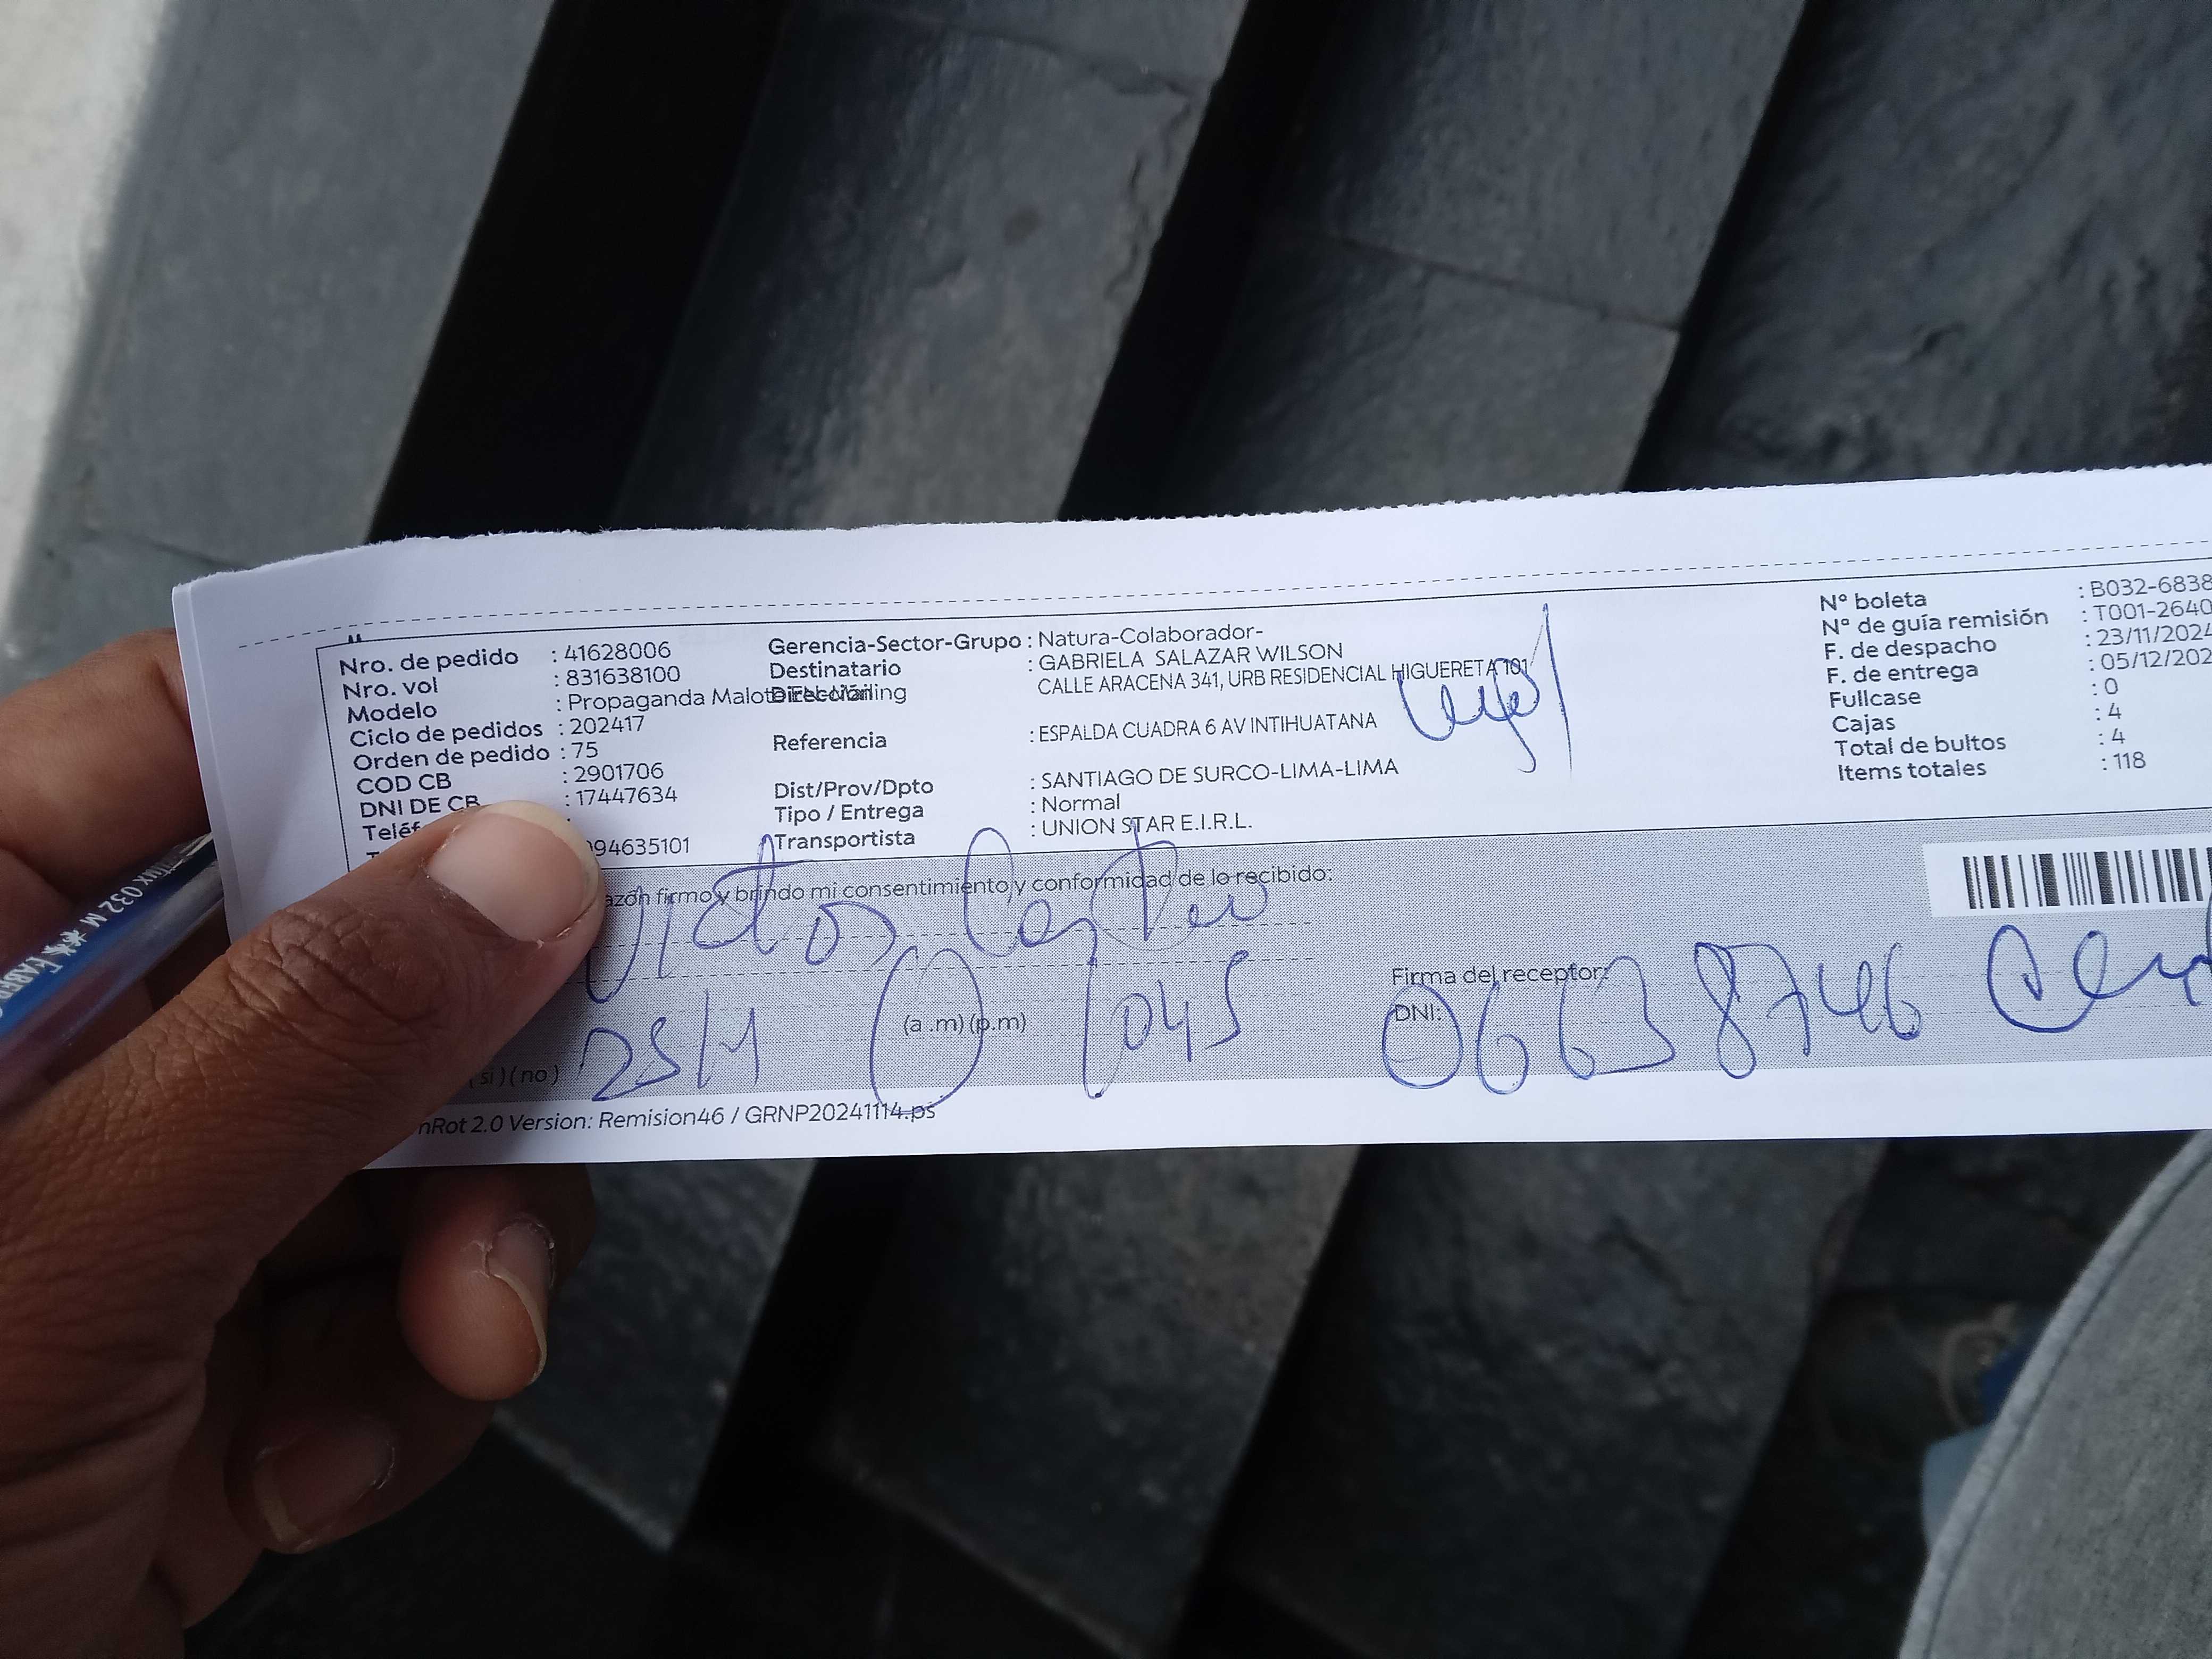 Nro. de pedido : 41628006
Nro. vol : 831638100
Modelo : Propaganda Malote EN-Mailing
Ciclo de pedidos : 202417
Orden de pedido : 75
COD CB : 2901706
DNI DE CB : 17447634
Teléf :
994635101
Gerencia-Sector-Grupo : Natura-Colaborador-
Destinatario : GABRIELA SALAZAR WILSON
Dirección CALLE ARACENA 341, URB RESIDENCIAL HIGUERETA 101
Referencia : ESPALDA CUADRA 6 AV INTIHUATANA
Dist/Prov/Dpto : SANTIAGO DE SURCO-LIMA-LIMA
Tipo / Entrega : Normal
Transportista : UNION STAR E.I.R.L.
N° boleta : B032-6838
N° de guía remisión : T001-2640
F. de despacho : 23/11/2024
F. de entrega : 05/12/202
Fullcase : 0
Cajas : 4
Total de bultos : 4
Items totales : 118
azón firmo y brindo mi consentimiento y conformidad de lo recibido:
Victor
Firma del receptor:
(a .m) (p.m) 1045
DNI: 06638746
(si) (no)
nRot 2.0 Version: Remision46 / GRNP20241114.ps
032 M